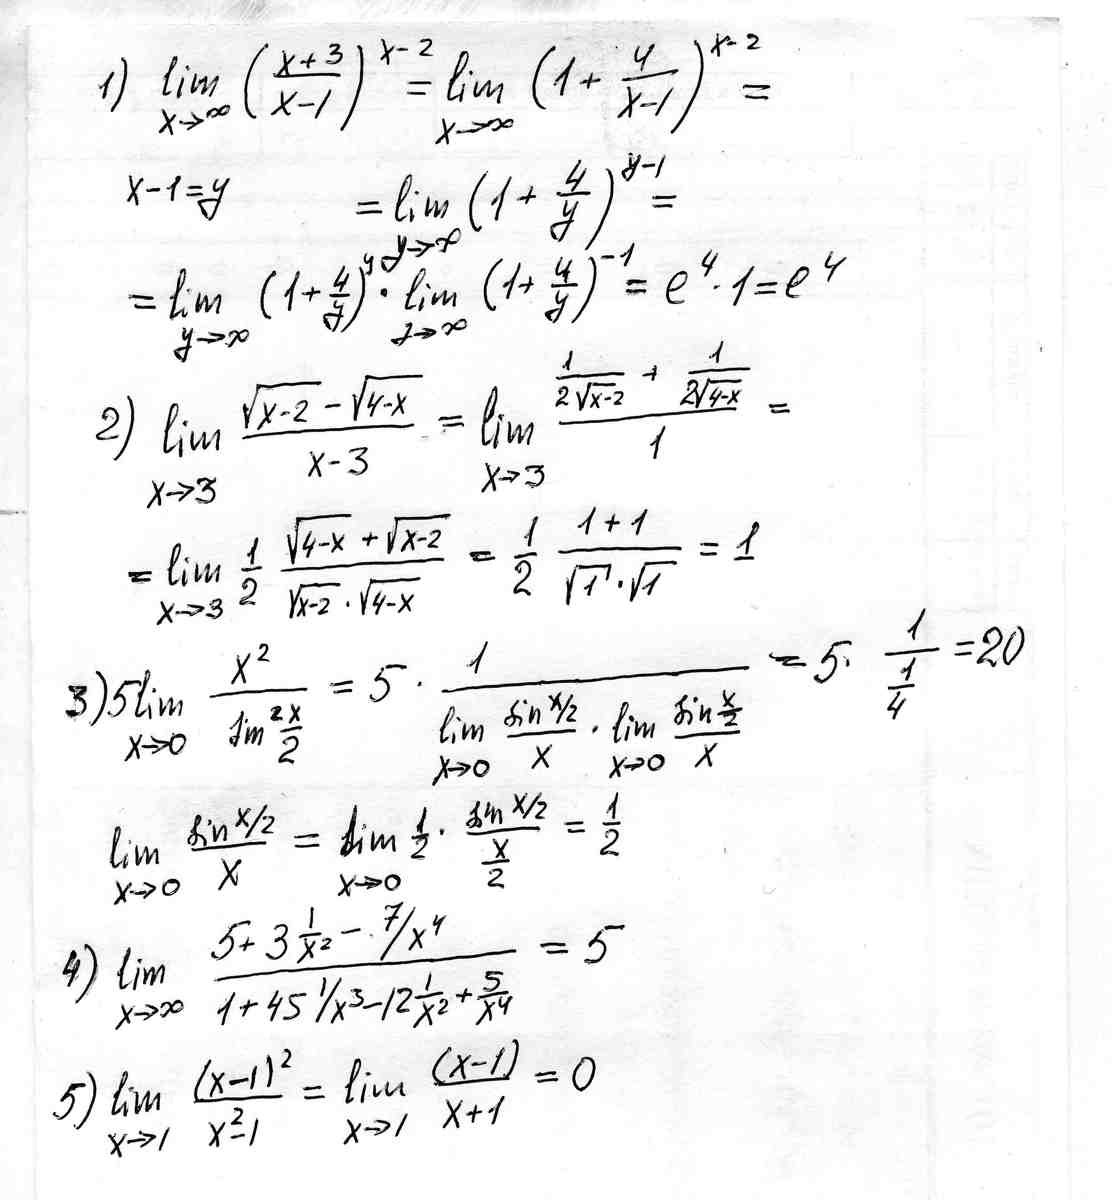 1) lim x→∞ ((x+3)/(x-1))^(x-2) = lim x→∞ (1 + 4/(x-1))^(x-2) =
x-1=y = lim y→∞ (1 + 4/y)^(y-1) =
= lim y→∞ (1 + 4/y)^y · lim y→∞ (1 + 4/y)^(-1) = e^4 · 1 = e^4
2) lim x→3 (√(x-2) - √(4-x))/(x-3) = lim x→3 (1/(2√(x-2)) + 1/(2√(4-x)))/1 =
= lim x→3 1/2 (√(4-x) + √(x-2))/(√(x-2) · √(4-x)) = 1/2 (1+1)/(√1 · √1) = 1
3) 5 lim x→0 x²/(sin² x/2) = 5 · 1/(lim x→0 (sin x/2)/x · lim x→0 (sin x/2)/x) = 5 · 1/(1/4) = 20
lim x→0 (sin x/2)/x = lim x→0 1/2 · (sin x/2)/(x/2) = 1/2
4) lim x→∞ (5 + 3 1/x² - 7/x⁴)/(1 + 45 1/x³ - 12 1/x² + 5/x⁴) = 5
5) lim x→1 (x-1)²/(x²-1) = lim x→1 (x-1)/(x+1) = 0